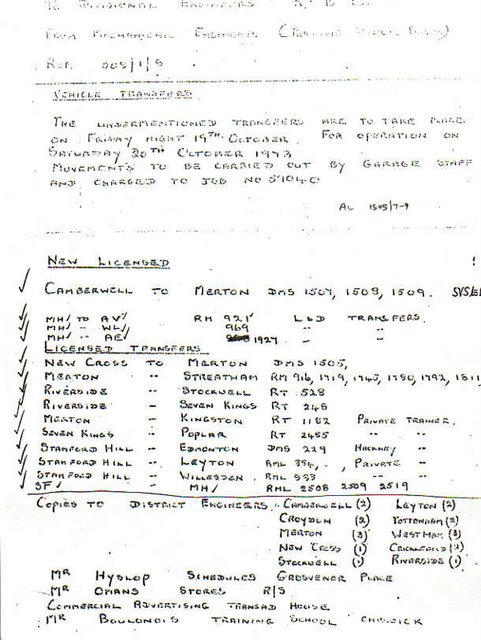 TO DIVISIONAL ENGINEERS
FROM MECHANICAL ENGINEER (ROLLING STOCK BUSES)
REF. 205/1/5
VEHICLE TRANSFERS
THE UNDERMENTIONED TRANSFERS ARE TO TAKE PLACE
ON FRIDAY NIGHT 19TH OCTOBER. FOR OPERATION ON
SATURDAY 20TH OCTOBER 1973
MOVEMENTS TO BE CARRIED OUT BY GARAGE STAFF
AND CHARGED TO JOB NO 57040
AL 1505/7-9
NEW LICENSED
CAMBERWELL TO MERTON DMS 1507, 1508, 1509.
MH/ TO AV/ RM 921/ L&D TRANSFERS.
MH/ " WL/ 969 " "
MH/ " AE/ 1927 " "
LICENSED TRANSFERS
NEW CROSS TO MERTON DMS 1505,
MERTON " STREATHAM RM 916, 1719, 1745, 1780, 1792, 1811
RIVERSIDE - STOCKWELL RT 528
RIVERSIDE - SEVEN KINGS RT 248
MERTON - KINGSTON RT 1182 PRIVATE TRAINER.
SEVEN KINGS " POPLAR RT 2485 " "
STAMFORD HILL - EDMONTON DMS 229 HACKNEY "
STAMFORD HILL " LEYTON RML 884, PRIVATE "
STAMFORD HILL " WILLESDEN RML 883 " "
SF/ - MH/ RML 2508 2509 2519
COPIES TO DISTRICT ENGINEERS CAMBERWELL (2) LEYTON (2)
CROYDON (2) TOTTENHAM (2)
MERTON (3) WEST HAM (3)
NEW CROSS (1) CRICKLEWOOD (2)
STOCKWELL (1) RIVERSIDE (1)
MR HYSLOP SCHEDULES GROSVENOR PLACE
MR OMANS STORES R/S
COMMERCIAL ADVERTISING TRANSAD HOUSE
MR BOULONOIS TRAINING SCHOOL CHISWICK